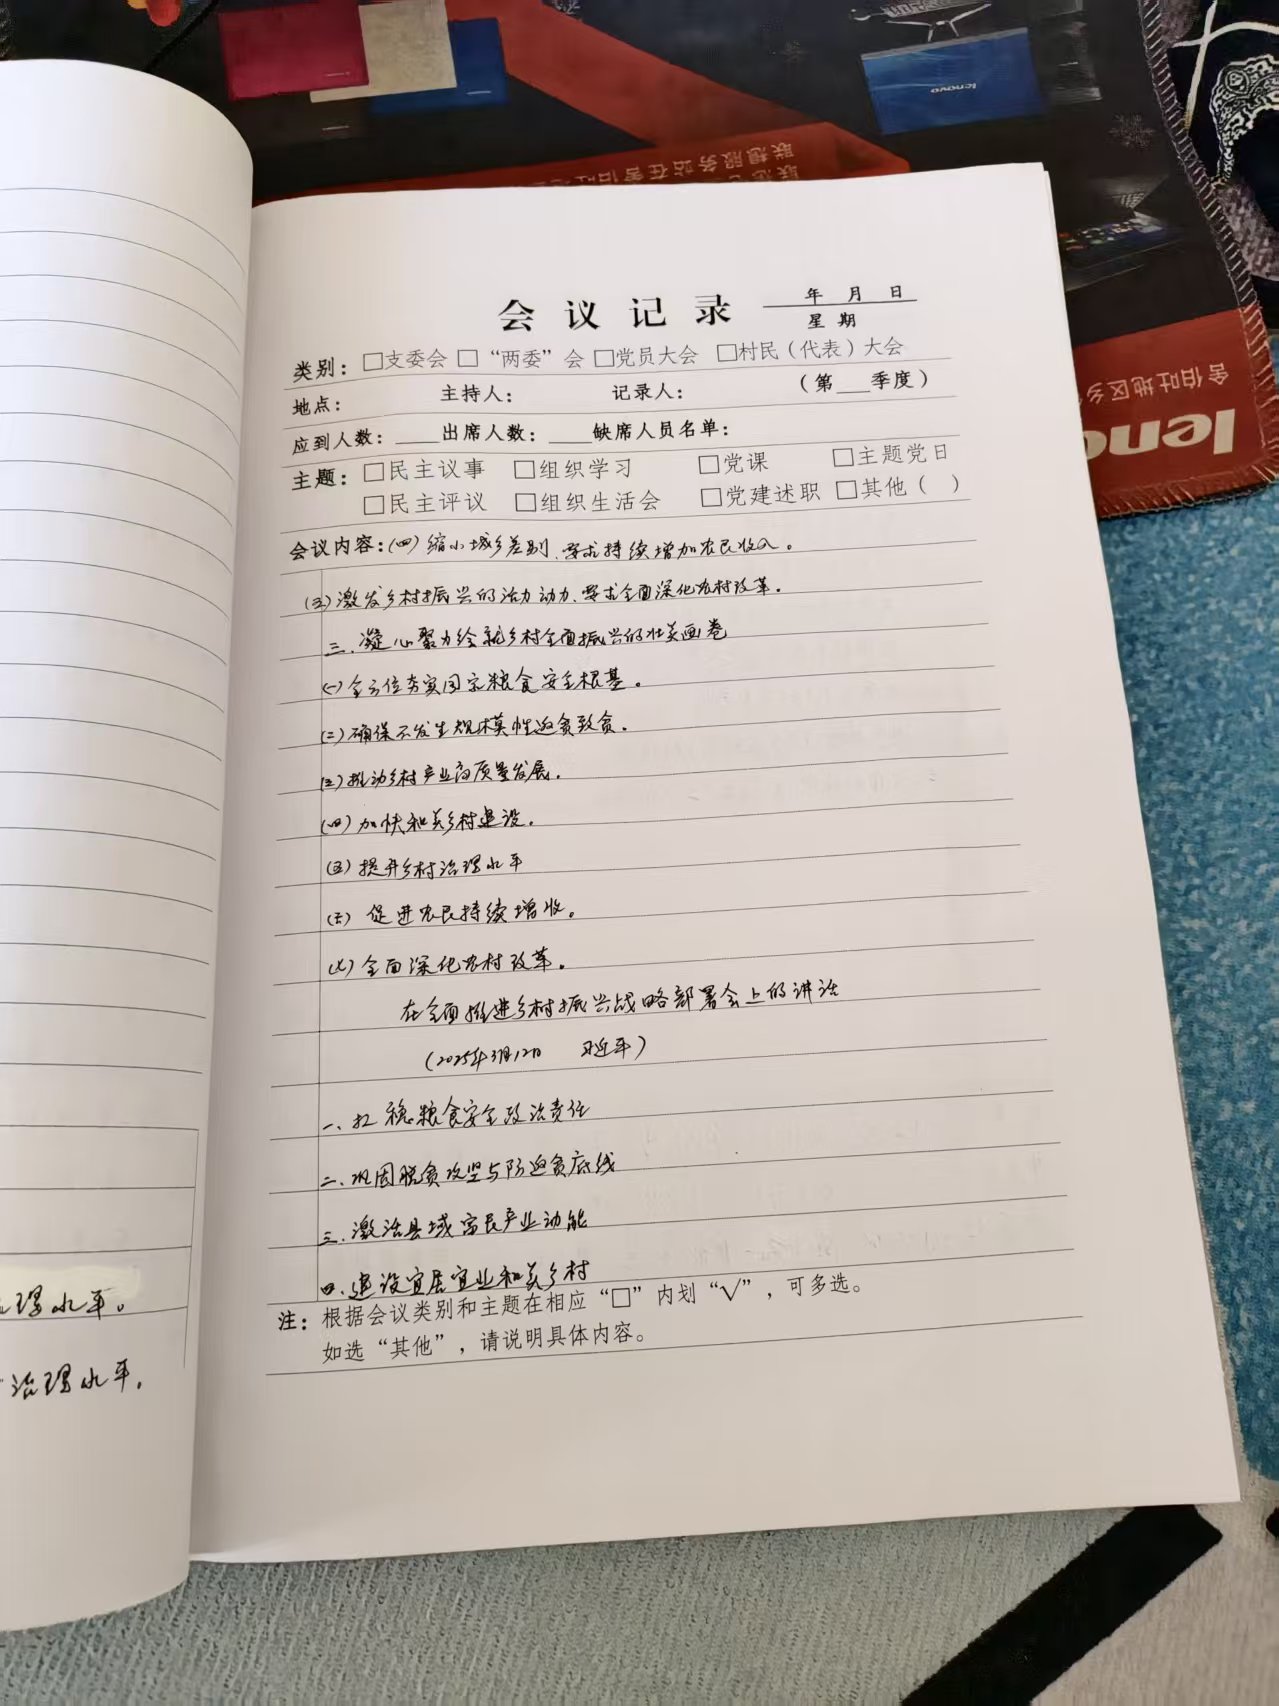 lenovo
联想服务站在舍伯吐
舍伯吐地区乡
会议记录 年 月 日
星期
类别：□支委会 □“两委”会 □党员大会 □村民（代表）大会
地点： 主持人： 记录人： （第 季度）
应到人数： 出席人数： 缺席人员名单：
主题：□民主议事 □组织学习 □党课 □主题党日
□民主评议 □组织生活会 □党建述职 □其他（ ）
会议内容：(四)缩小城乡差别、要求持续增加农民收入。
(五)激发乡村振兴的活力动力、要求全面深化农村改革。
三、凝心聚力绘就乡村全面振兴的壮美画卷
(一)全方位夯实国家粮食安全根基。
(二)确保不发生规模性返贫致贫。
(三)推动乡村产业高质量发展。
(四)加快和美乡村建设。
(五)提升乡村治理水平
(六)促进农民持续增收。
(七)全面深化农村改革。
在全面推进乡村振兴战略部署会上的讲话
(2025年3月12日 习近平)
一、扛稳粮食安全政治责任
二、巩固脱贫攻坚与防返贫底线
三、激活县域富民产业动能
四、建设宜居宜业和美乡村
注：根据会议类别和主题在相应“□”内划“√”，可多选。
如选“其他”，请说明具体内容。
理水平。
治理水平，